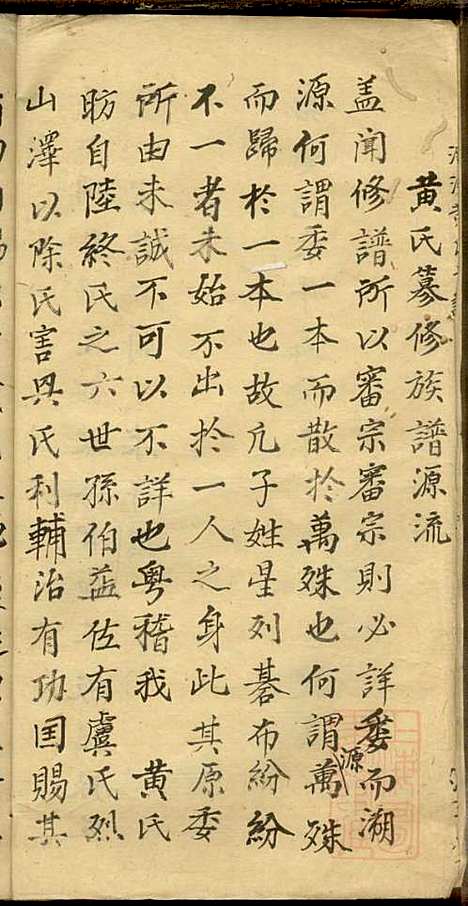 黄氏蓦修族譜源流
盖闻修譜所以審宗審宗則必詳委而溯
源何謂委一本而散扵萬殊也何謂源萬殊
而歸扵一本也故凢子姓星列碁布紛紛
不一者未始不出扵一人之身此其原委
所由来誠不可以不詳也粤稽我 黄氏
昉自陸終氏之六世孫伯益佐有虞氏烈
山澤以除氏害興氏利輔治有功囯賜其